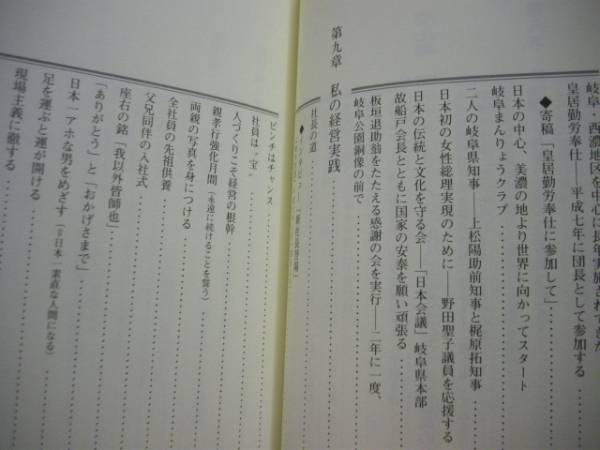 岐阜・西濃地区を中心に長年実施されてきた
皇居勤労奉仕――平成七年に団長として参加する
◆寄稿「皇居勤労奉仕に参加して」
日本の中心、美濃の地より世界に向かってスタート
岐阜まんりょうクラブ
二人の岐阜県知事――上松陽助前知事と梶原拓知事
日本初の女性総理実現のために――野田聖子議員を応援する
日本の伝統と文化を守る会――「日本会議」岐阜県本部
故船戸会長とともに国家の安泰を願い頑張る
板垣退助翁をたたえる感謝の会を実行――二年に一度、
岐阜公園銅像の前で
第九章 私の経営実践
社長の道
ピンチはチャンス
社員は〝宝〟
人づくりこそ経営の根幹
親孝行強化月間(永遠に続けることを誓う)
両親の写真を身につける
全社員の先祖供養
父兄同伴の入社式
座右の銘「我以外皆師也」
「ありがとう」と「おかげさまで」
日本一アホな男をめざす
足を運ぶと運が開ける
現場主義に徹する